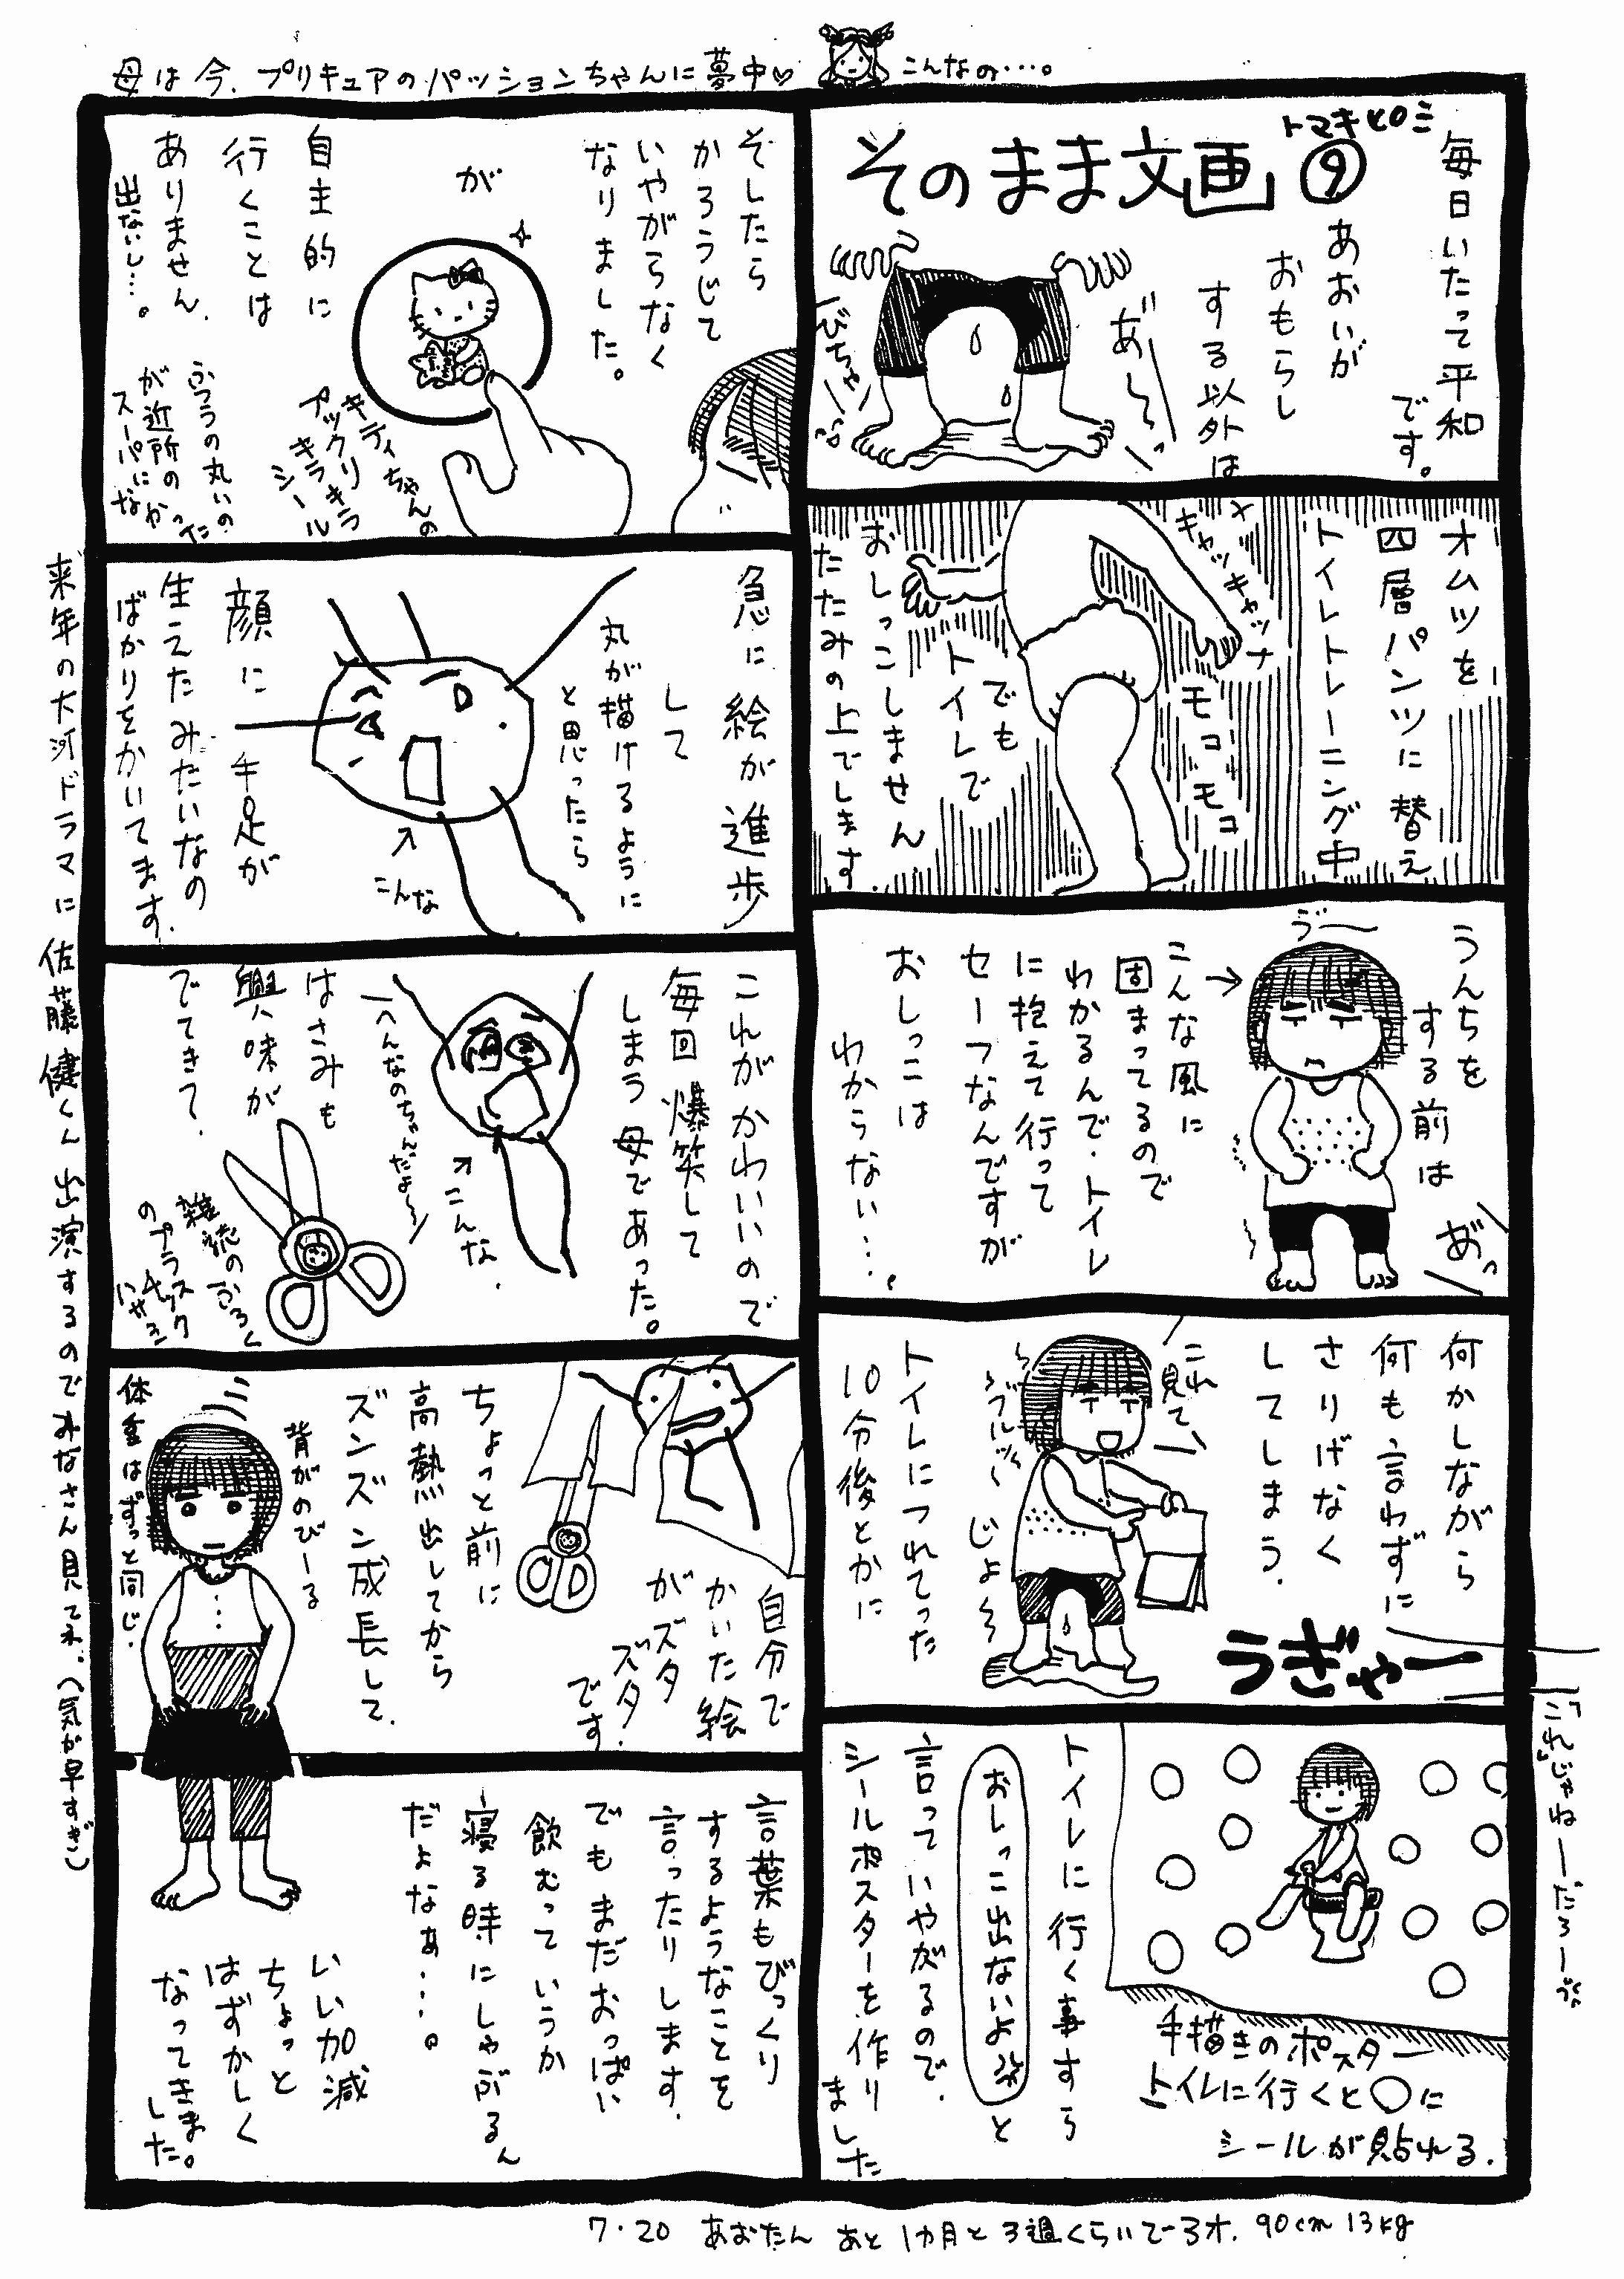 母は今、プリキュアのパッションちゃんに夢中♡
こんなの…。
トマキヒロミ
そのまま文画⑨
毎日いたって平和
です。
あおいが
おもらし
する以外は
あ゛〜っ
びちゃ
オムツを
四層パンツに替え
トイレトレーニング中
キャッキャッ
モコモコ
でも
トイレで
おしっこしません
たたみの上でします.
うんちを
する前は
ゔ〜
あ゛っ
こんな風に→
固まってるので
わかるんで.トイレ
に抱えて行って
セーフなんですが
おしっこは
わからない…。
何かしながら
何も言わずに
さりげなく
してしまう.
これ
見て、
ブルッ
じょ〜
うぎゃー
「これじゃねーだろー」
トイレにつれてった
10分後とかに
手描きのポスター
トイレに行くと○に
シールが貼れる.
トイレに行く事すら
おしっこ出ないよ
と
言っていやがるので.
シールポスターを作り
ました
そしたら
かろうじて
いやがらなく
なりました。
が
自主的に
行くことは
ありません.
出ないし…。
キティちゃんの
プックリ
キラキラ
シール
ふつうの丸いの
が近所の
スーパーになかった
急に絵が進歩
して
丸が描けるように
と思ったら
↑
こんな
顔に手足が
生えたみたいなの
ばかりをかいてます.
これがかわいいので
毎回爆笑して
しまう母であった。
↑こんな.
へんなのちゃんだよ〜
はさみも
興味が
でてきて.
雑誌のふろく
のプラスチック
自分で
かいた絵
がズタ
ズタ!
です.
ちょっと前に
高熱出してから
ズンズン成長して.
背がのびーる
体重はずっと同じ.
言葉もびっくり
するようなことを
言ったりします.
でもまだおっぱい
飲むっていうか
寝る時にしゃぶるん
だよなぁ…。
いい加減
ちょっと
はずかしく
なってきま
した。
来年の大河ドラマに佐藤健くん出演するのでみなさん見てネ。(気が早すぎ)
7・20 あおたん あと1カ月と3週くらいで3才. 90cm 13kg